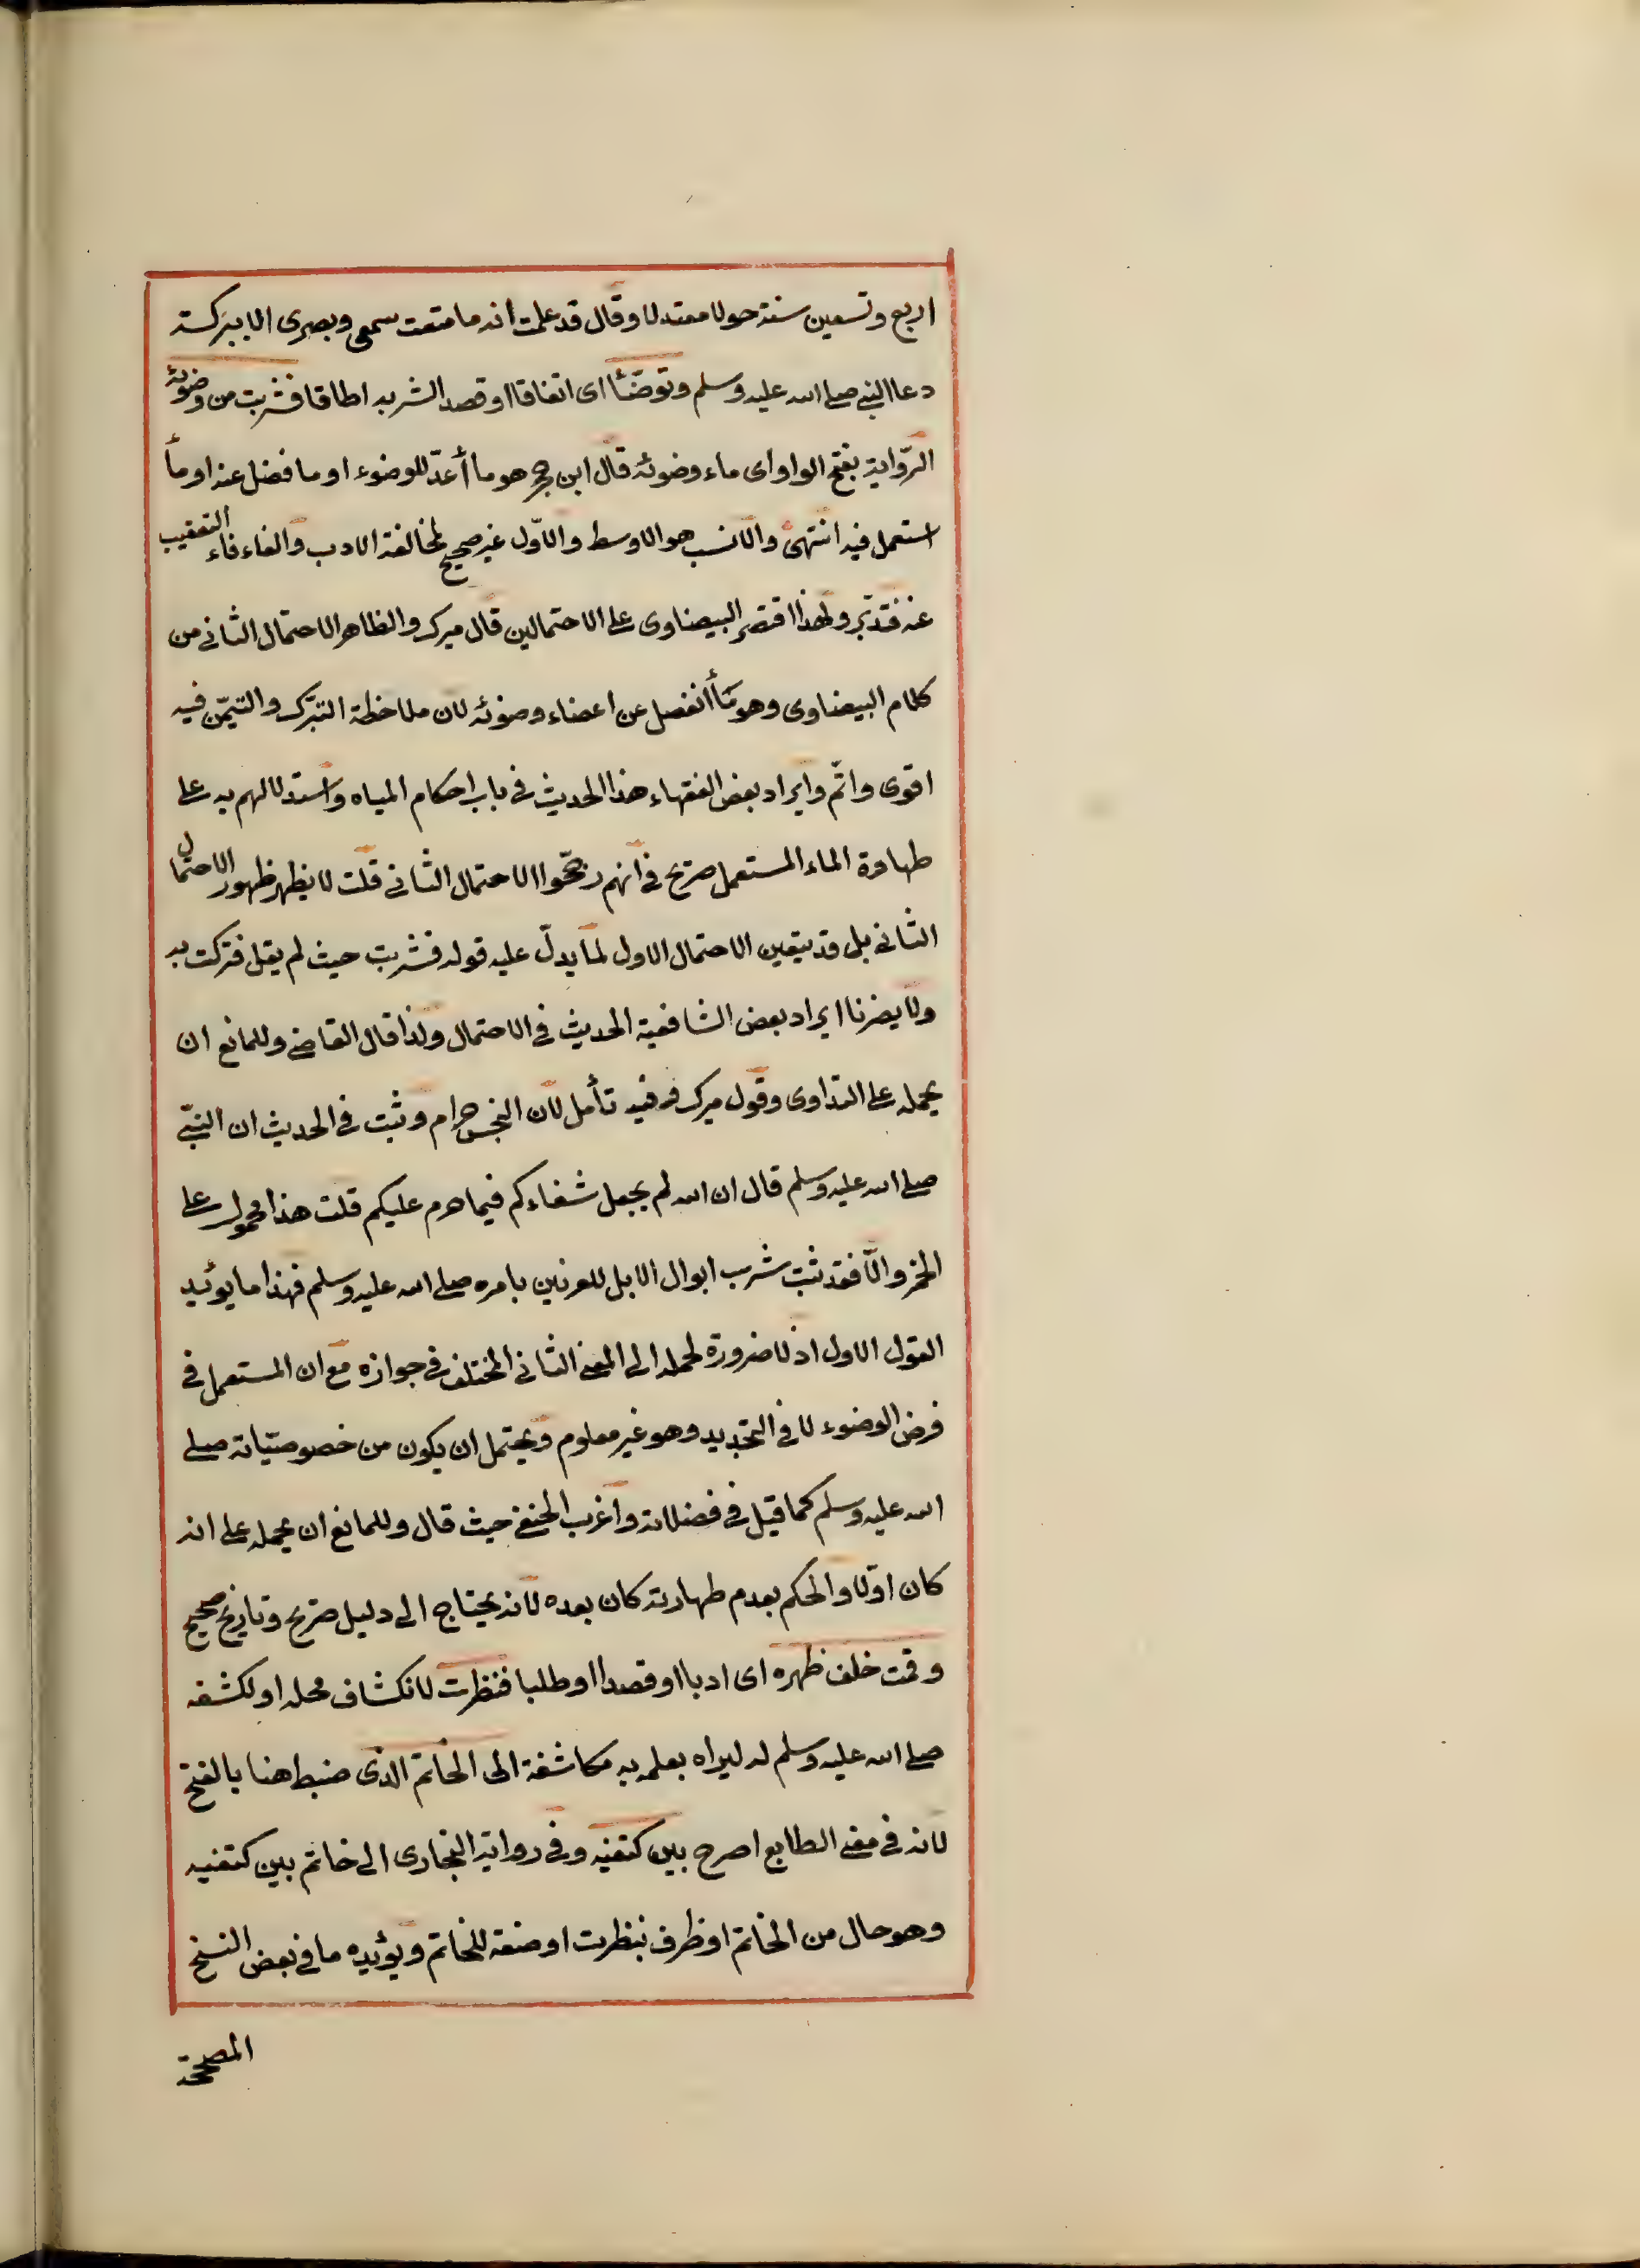 اربع وتسعين سنة حولا معتدلا وقال قد علمت انه ما متعت سمعى وبصرى الا ببركة
دعا النبى صلى الله عليه وسلم وتوضّأ اى اتفاقا او قصد الشربه اطلاقا فشربت من وضوئه
الرّواية بفتح الواو اى ماء وضوئه قال ابن حجر هو ما أعدّ للوضوء او ما فضل عنه او ما
استعمل فيه انتهى والانسب هو الاوسط والاوّل غير صحيح لمخالفة الادب والفاء فاء التعقيب
عنه فتدبّر ولهذا اقتصر البيضاوى على الاحتمالين قال ميرك والظاهر الاحتمال الثانى من
كلام البيضاوى وهو ما أنفصل عن اعضاء وضوئه لان ملاحظة التبرّك والتيمّن فيه
اقوى واتمّ وايراد بعض الفقهاء هذا الحديث فى باب احكام المياه واستدلالهم به على
طهارة الماء المستعمل صريح فى انهم رجّحوا الاحتمال الثانى قلت لا يظهر ظهور الاحتمال
الثانى بل قد يتعين الاحتمال الاول لما يدلّ عليه قوله فشربت حيث لم يقل فتبركت به
ولا يضرنا ايراد بعض الشافعية الحديث فى الاحتمال ولذا قال القاضى وللمانع ان
يحمله على التداوى وقول ميرك فيه تأمل لان النجس حرام وثبت فى الحديث ان النبىّ
صلى الله عليه وسلم قال ان الله لم يجعل شفاءكم فيما حرم عليكم قلت هذا محمول على
الخمر والّا فقد ثبت شرب ابوال الابل للعرنين بامره صلى الله عليه وسلم فهذا ما يؤيد
القول الاول اذ لا ضرورة لحمله الى المعنى الثانى المختلف فى جوازه مع ان المستعمل فى
فرض الوضوء لا فى التجديد وهو غير معلوم ويحتمل ان يكون من خصوصيّاته صلى
الله عليه وسلم كما قيل فى فضلاته واغرب الحنفى حيث قال وللمانع ان يحمله على انه
كان اوّلا والحكم بعدم طهارته كان بعده لانه يحتاج الى دليل صريح وتاريخ صحيح
وقمت خلف ظهره اى ادبا او قصدا او طلبا فنظرت لانكشاف محله او لكشفه
صلى الله عليه وسلم له ليراه بعلمه به مكاشفة الى الخاتم الذى ضبط هنا بالفتح
لانه فى معنى الطابع اصرح بين كتفيه وفى رواية البخارى الى خاتم بين كتفيه
وهو حال من الخاتم او ظرف بنظرت او صفة للخاتم ويؤيده ما فى بعض النسخ
المصححة